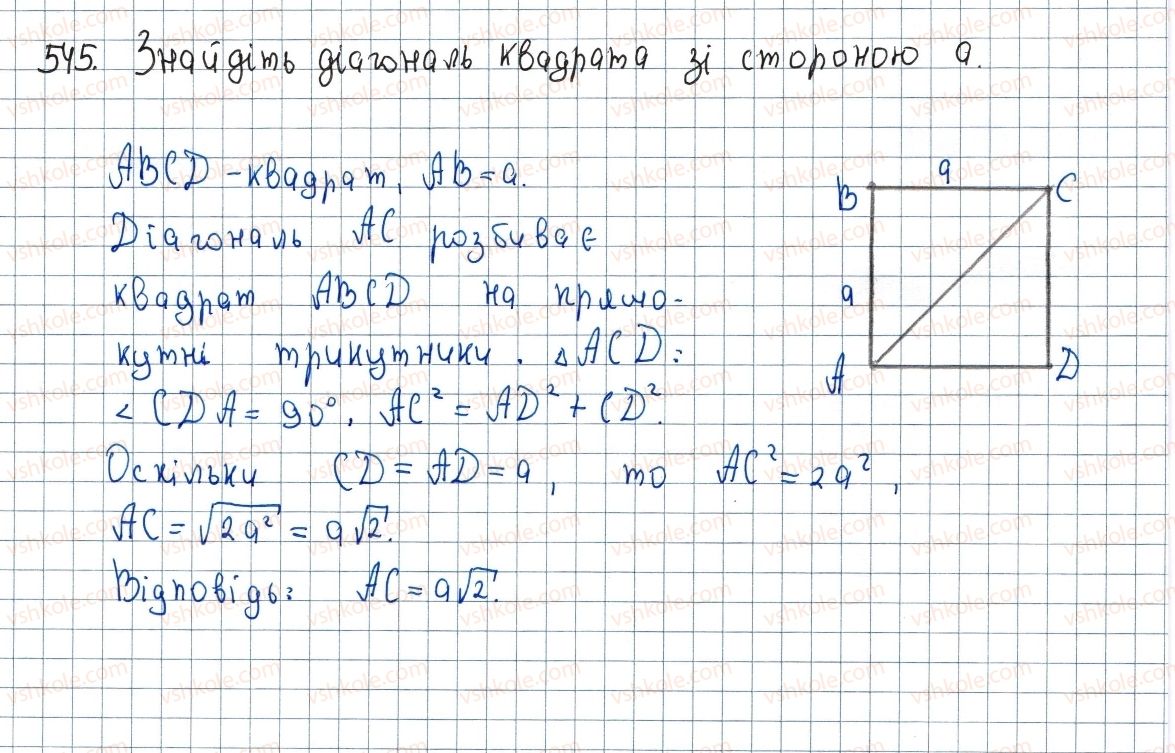 545. Знайдіть діагональ квадрата зі стороною a.
ABCD - квадрат, AB = a.
Діагональ AC розбиває
квадрат ABCD на прямо-
кутні трикутники. △ACD:
∠CDA = 90°, AC² = AD² + CD².
Оскільки CD = AD = a, то AC² = 2a²,
AC = √2a² = a√2.
Відповідь: AC = a√2.
a
B
C
a
A
D
vshkole.com